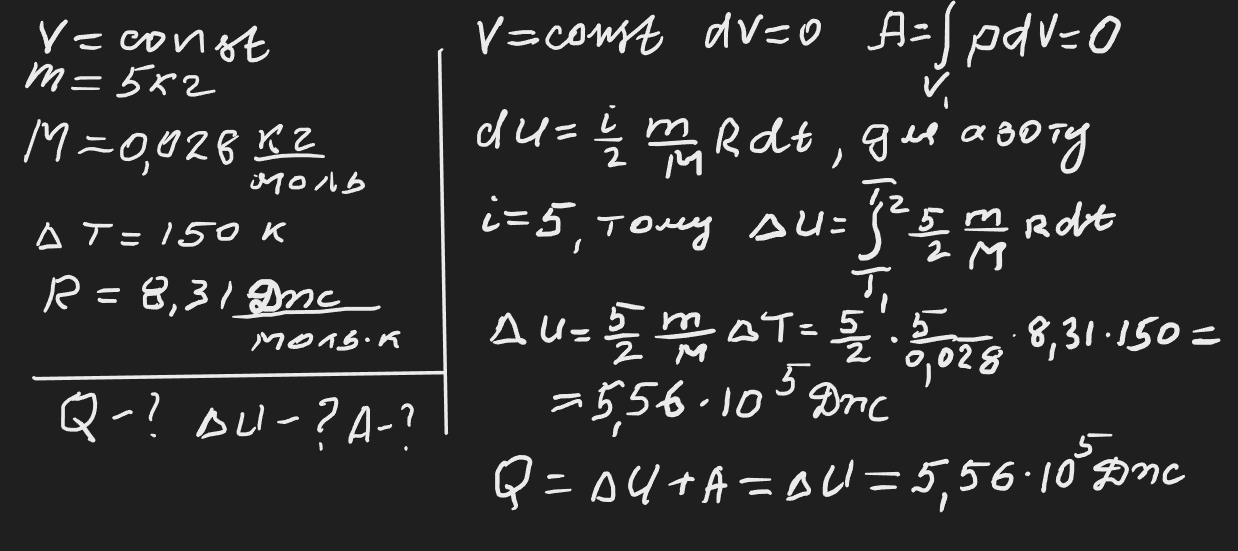 V = const
m = 5 кг
M = 0,028 кг/моль
ΔT = 150 К
R = 8,31 Дж/моль·К
Q - ? ΔU - ? A - ?
V = const dV = 0 A = ∫_{V₁} pdV = 0
dU = i/2 m/M Rdt, для азоту
i = 5, тому ΔU = ∫_{T₁}^{T₂} 5/2 m/M Rdt
ΔU = 5/2 m/M ΔT = 5/2 · 5/0,028 · 8,31 · 150 =
= 5,56 · 10⁵ Дж
Q = ΔU + A = ΔU = 5,56 · 10⁵ Дж